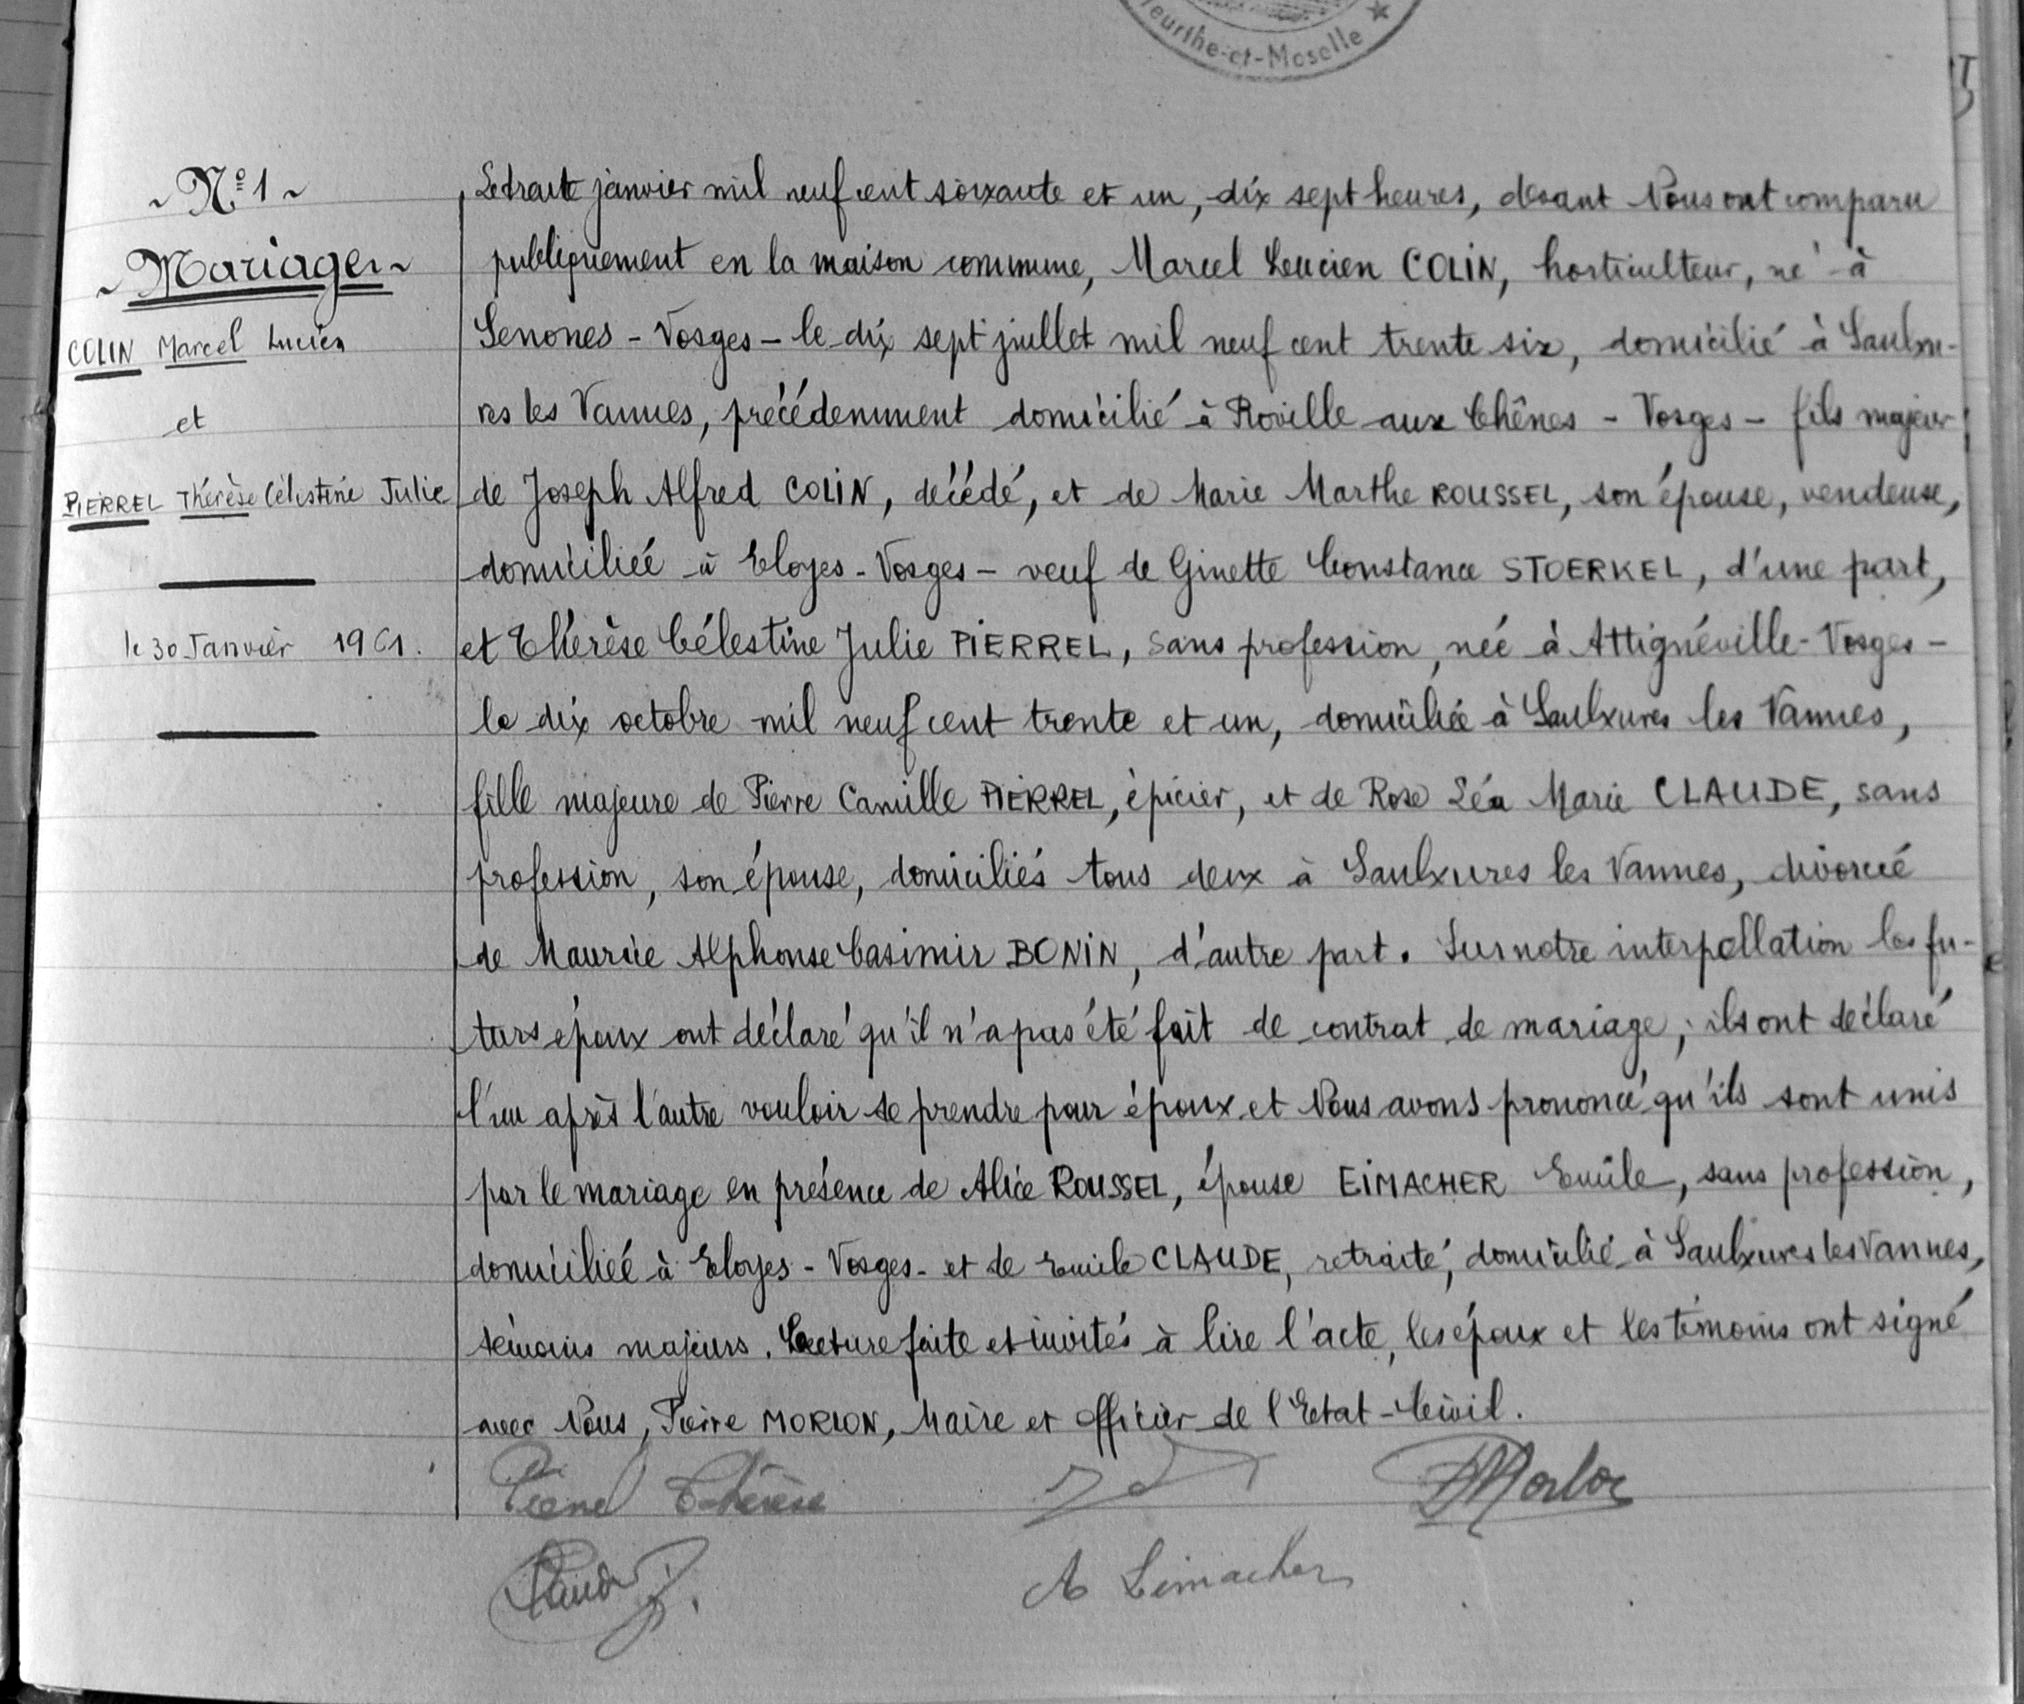 eurthe-et-Moselle ★
5
~ Nº 1 ~
~ Mariage ~
COLIN Marcel Lucien
et
PIERREL Thérèse Célestine Julie
le 30 Janvier 1961.
Le trente janvier mil neuf cent soixante et un, dix sept heures, devant Nous ont comparu
publiquement en la maison commune, Marcel Lucien COLIN, horticulteur, né à
Senones - Vosges - le dix sept juillet mil neuf cent trente six, domicilié à Saulxu-
res les Vannes, précédemment domicilié à Roville aux Chênes - Vosges - fils majeur
de Joseph Alfred COLIN, décédé, et de Marie Marthe ROUSSEL, son épouse, vendeuse,
domiciliée à Eloyes - Vosges - veuf de Ginette Constance STOERKEL, d'une part,
et Thérèse Célestine Julie PIERREL, sans profession, née à Attignéville - Vosges -
le dix octobre mil neuf cent trente et un, domiciliée à Saulxures les Vannes,
fille majeure de Pierre Camille PIERREL, épicier, et de Rose Léa Marie CLAUDE, sans
profession, son épouse, domiciliés tous deux à Saulxures les Vannes, divorcée
de Maurice Alphonse Casimir BONIN, d'autre part. Sur notre interpellation les fu-
turs époux ont déclaré qu'il n'a pas été fait de contrat de mariage ; ils ont déclaré
l'un après l'autre vouloir se prendre pour époux et Nous avons prononcé qu'ils sont unis
par le mariage en présence de Alice ROUSSEL, épouse EIMACHER Emile, sans profession,
domiciliée à Eloyes - Vosges - et de Emile CLAUDE, retraité, domicilié à Saulxures les Vannes,
témoins majeurs. Lecture faite et invités à lire l'acte, les époux et les témoins ont signé
avec Nous, Pierre MORLON, Maire et Officier de l'Etat-Civil.
Pierrel Thérèse
PMorlon
A Eimacher